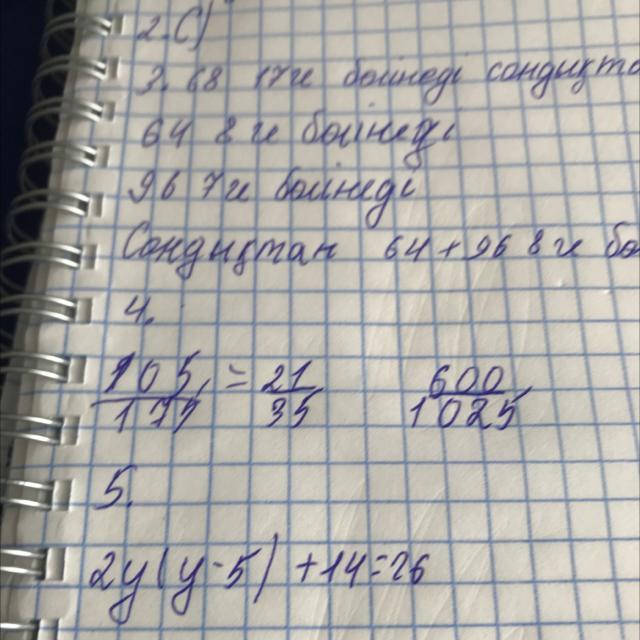 2. C)
3. 68 17 ге бөлінеді сондықта
64 8 ге бөлінеді
96 7 ге бөлінеді
Сондықтан 64 + 96 8 ге бө
4.
105/177 = 21/35 600/1025
5.
2y(y-5) + 14 = 26